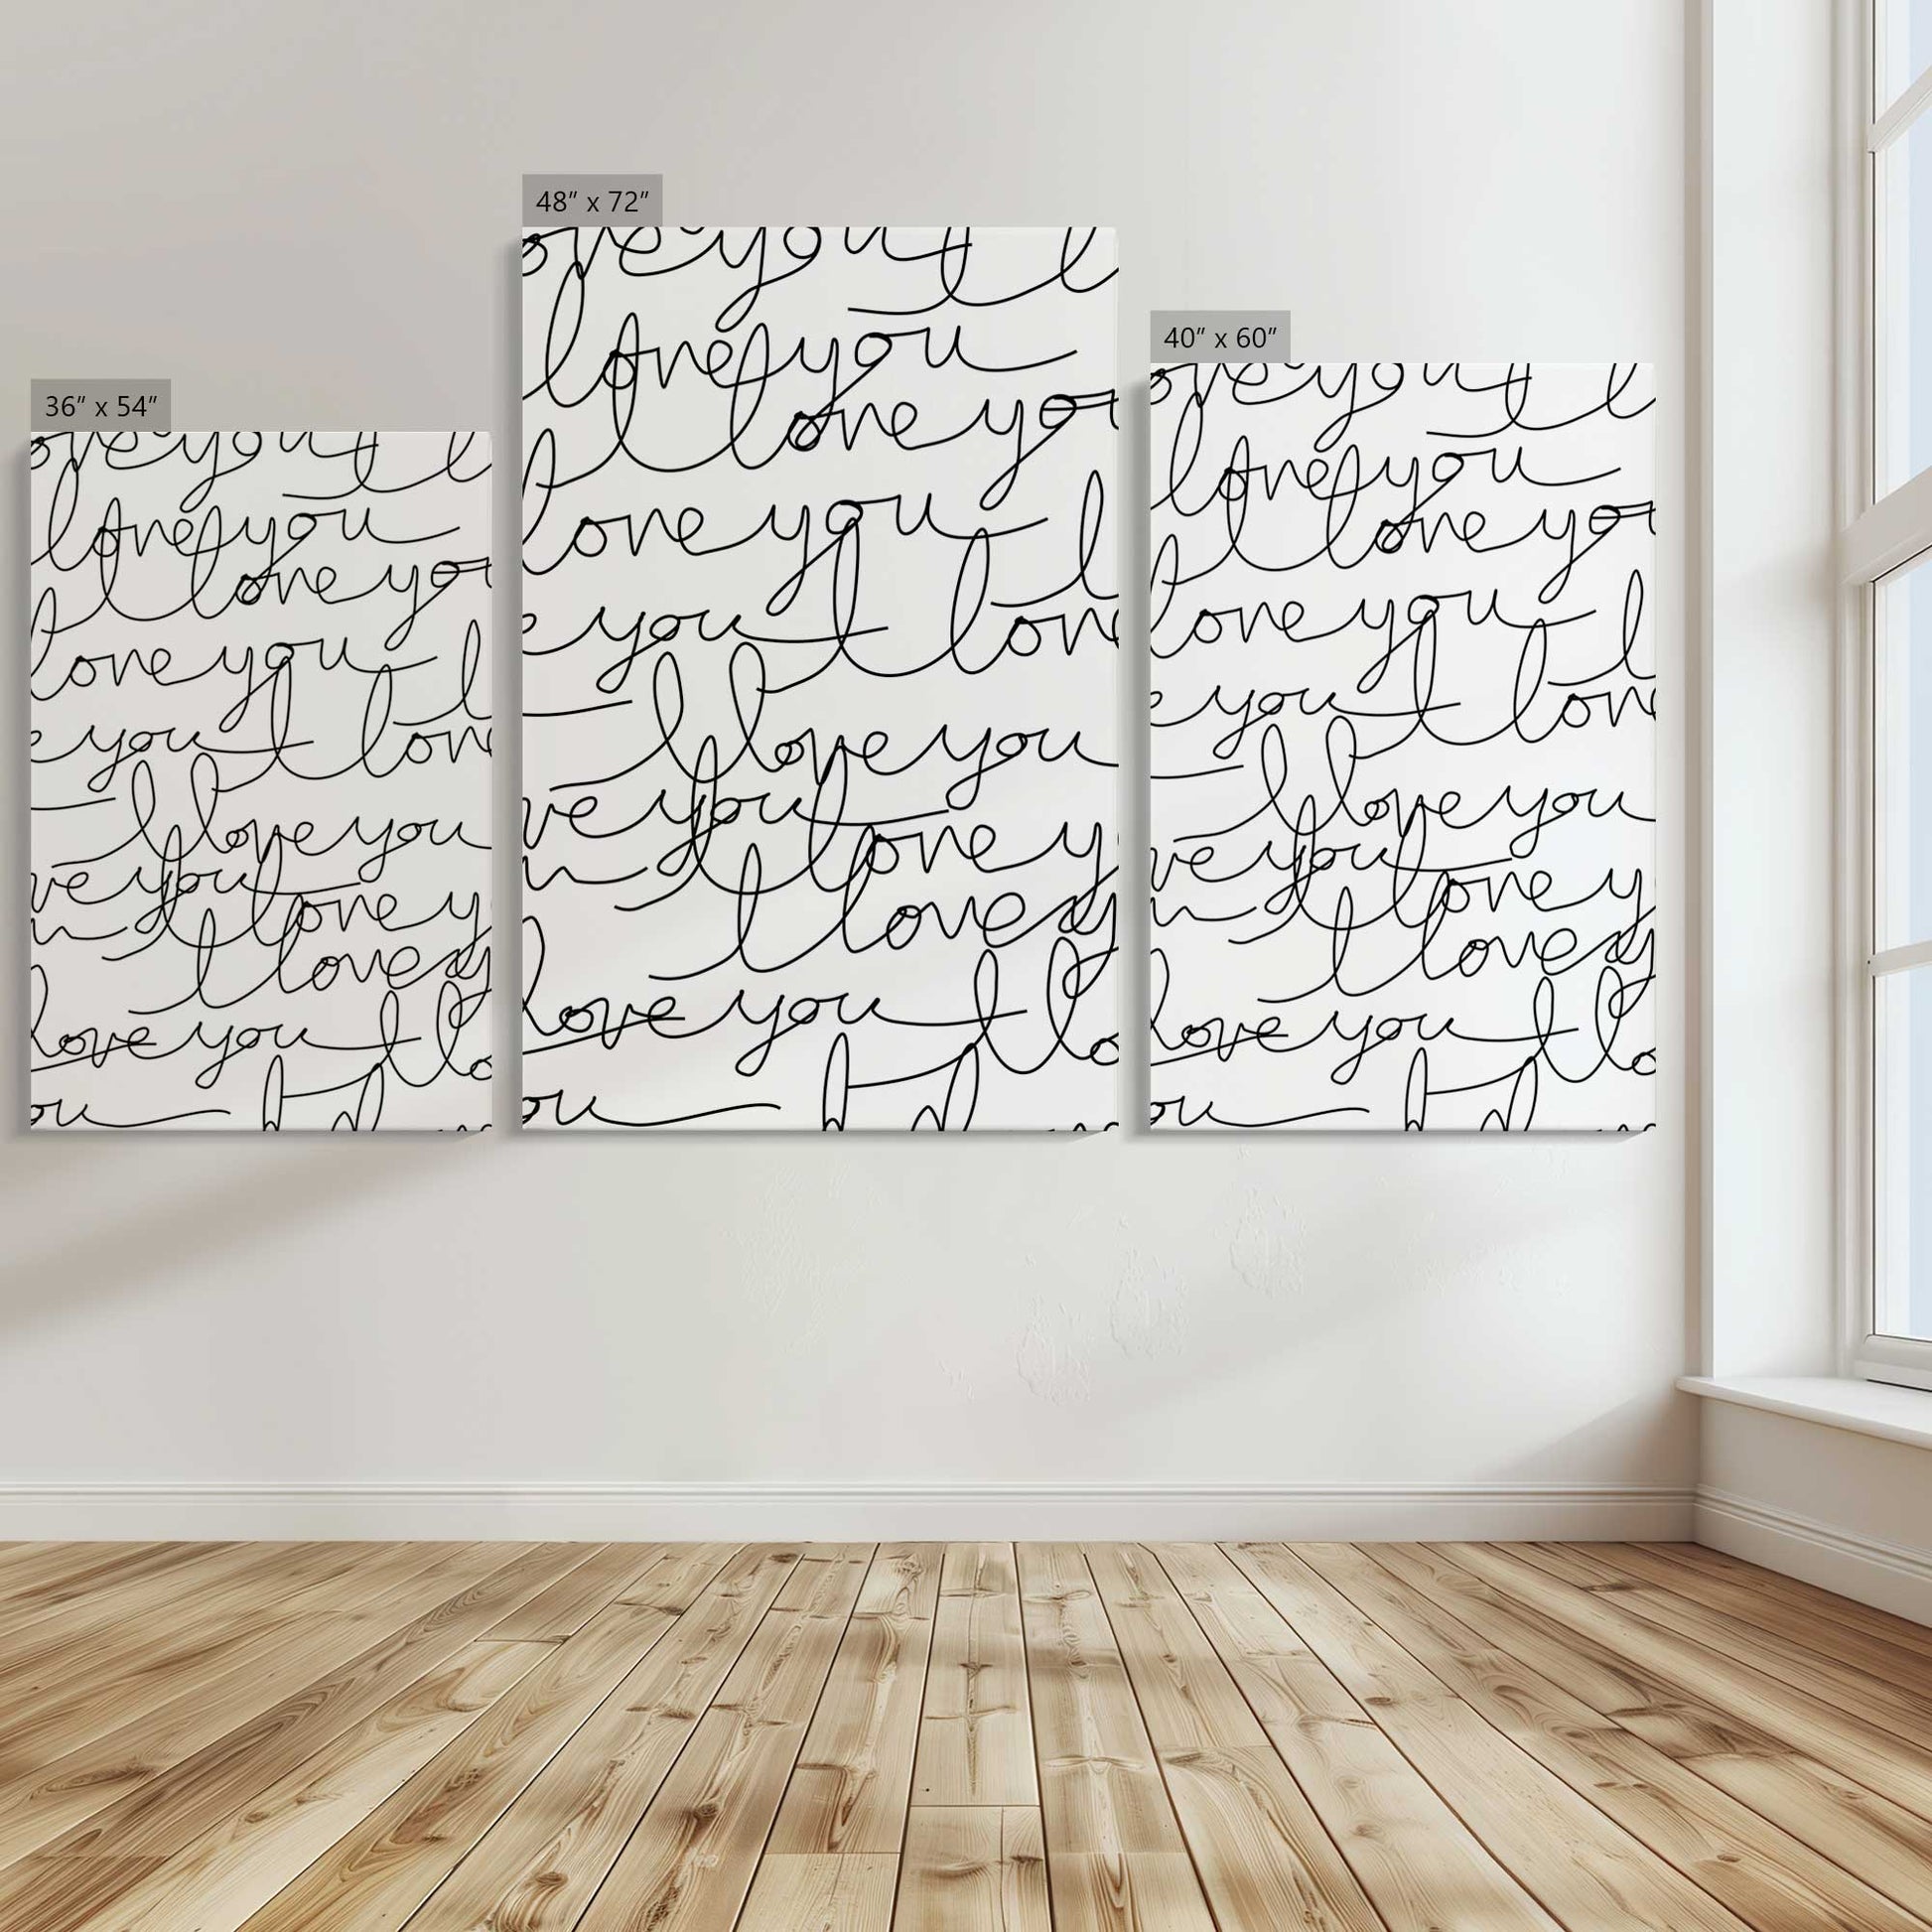 36” x 54”
ove you I l
love you
I love you
love you I
e you I love
I love you
ve you I love y
u I love y
love you I lo
ou I lo
48” x 72”
ove you I l
love you
I love you
love you I
e you I love
I love you
ve you I love y
u I love y
love you I lo
ou I lo
40” x 60”
ove you I l
love you
I love you
love you I
e you I love
I love you
ve you I love y
u I love y
love you I lo
ou I lo